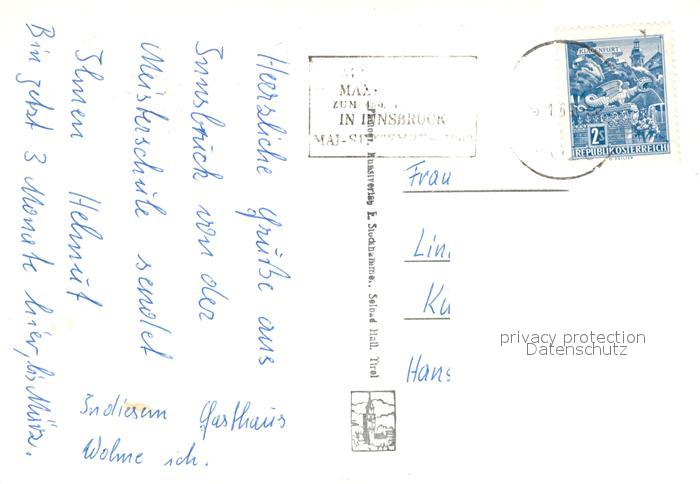 Herzliche Grüße aus
Innsbruck von der
Meisterschule sendet
Ihnen Helmut
Bin jetzt 3 Monate hier, bis März.
In diesem Gasthaus
Wohne ich.
MAX-
ZUM 450.
IN INNSBRUCK
MAI-SEPTEMBER
Kunstverlag E. Stockhammer, Solbad Hall, Tirol
KLAGENFURT
2S
REPUBLIK ÖSTERREICH
Frau
Lin
Ku
Hans
privacy protection
Datenschutz